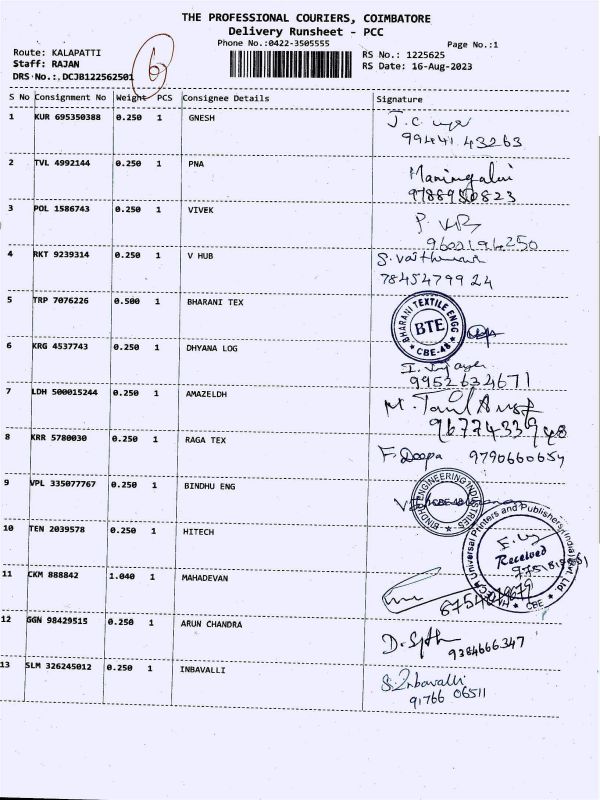 THE PROFESSIONAL COURIERS, COIMBATORE
Delivery Runsheet - PCC
Phone No.:0422-3505555
Page No.:1
Route: KALAPATTI
RS No.: 1225625
Staff: RAJAN
RS Date: 16-Aug-2023
DRS No.:.DCJB122562501
6
S No Consignment No Weight PCS Consignee Details Signature
1 KUR 695350388 0.250 1 GNESH J.C.
99441 43263
2 TVL 4992144 0.250 1 PNA
9788950823
3 POL 1586743 0.250 1 VIVEK P.
9602194250
4 RKT 9239314 0.250 1 V HUB S.
7845479924
5 TRP 7076226 0.500 1 BHARANI TEX
BHARANI TEXTILE ENGG BTE * CBE-48 *
6 KRG 4537743 0.250 1 DHYANA LOG
9952634671
7 LDH 500015244 0.250 1 AMAZELDH M.
9677433948
8 KRR 5780030 0.250 1 RAGA TEX F. Deepa 9790660654
9 VPL 335077767 0.250 1 BINDHU ENG
BINDHU ENGINEERING INDUSTRIES CBE-48
10 TEN 2039578 0.250 1 HITECH
Universal Printers and Publishers (India) Pvt. Ltd. * CBE *
Received
11 CKM 888842 1.040 1 MAHADEVAN
12 GGN 98429515 0.250 1 ARUN CHANDRA D.
9384666347
13 SLM 326245012 0.250 1 INBAVALLI S. Inbavalli
91766 06511